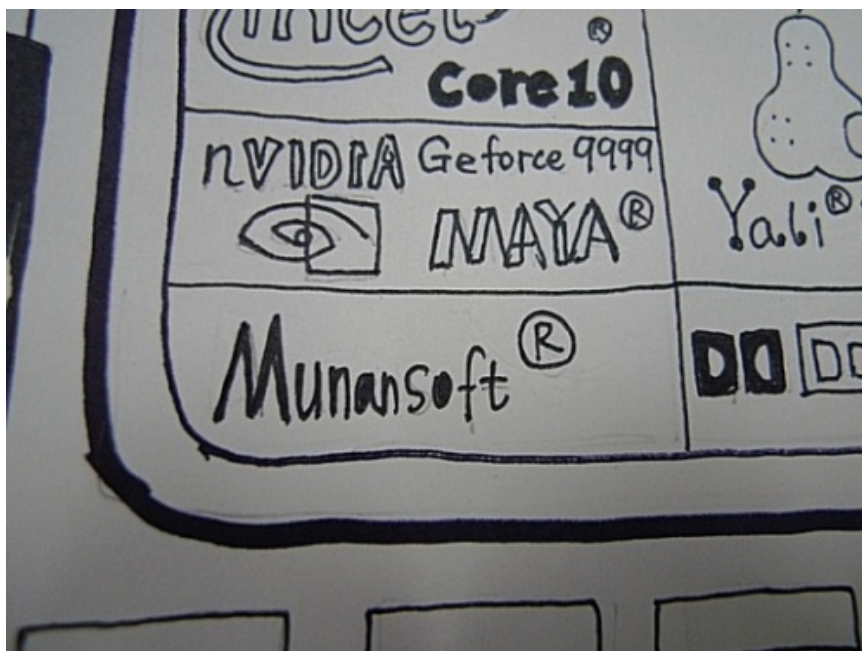 intel ®
Core 10
nVIDIA Geforce 9999
MAYA ®
Munansoft ®
Yali ®